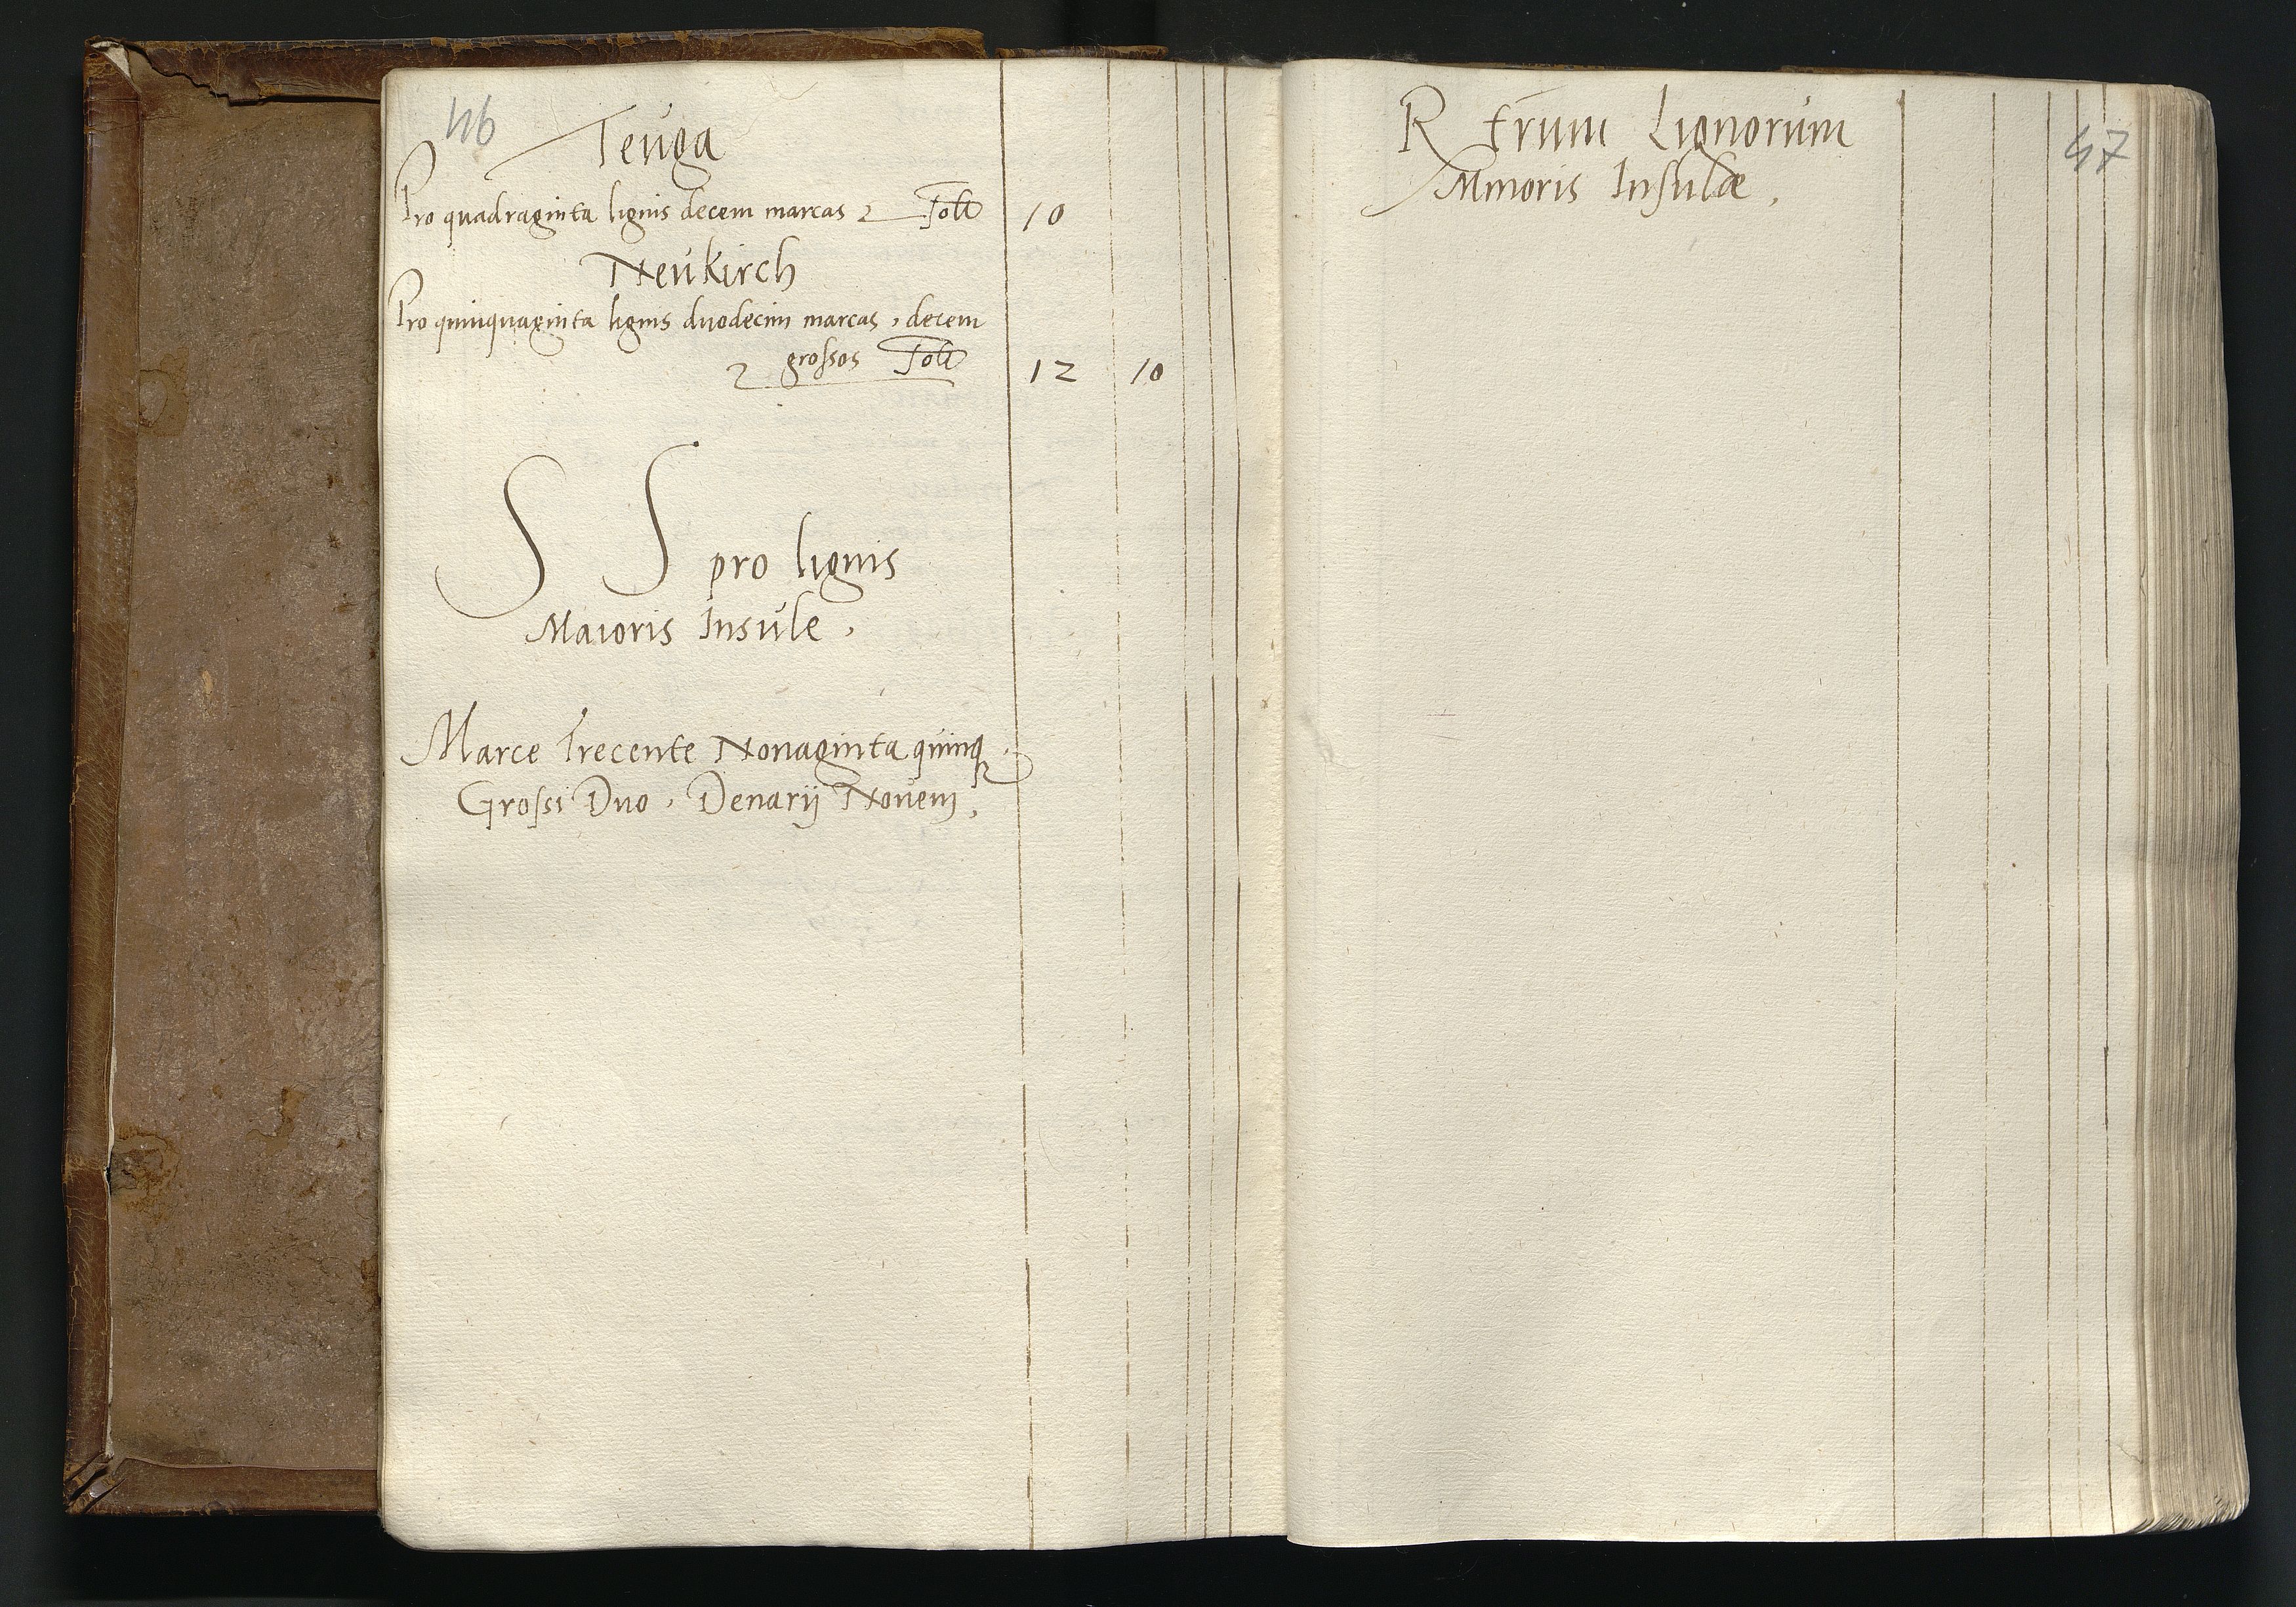 46
Teuga
Pro quadraginta lignis decem marcas
10
Neukirch
Pro quinquaginta lignis duodecim marcas, decem
grossos
12 10
S S pro lignis
Maioris Insule,
Marce Trecente Nonaginta quinq
Grossi Duo, Denarij Novem,
47
R trum Lignorum
Minoris Insulæ,